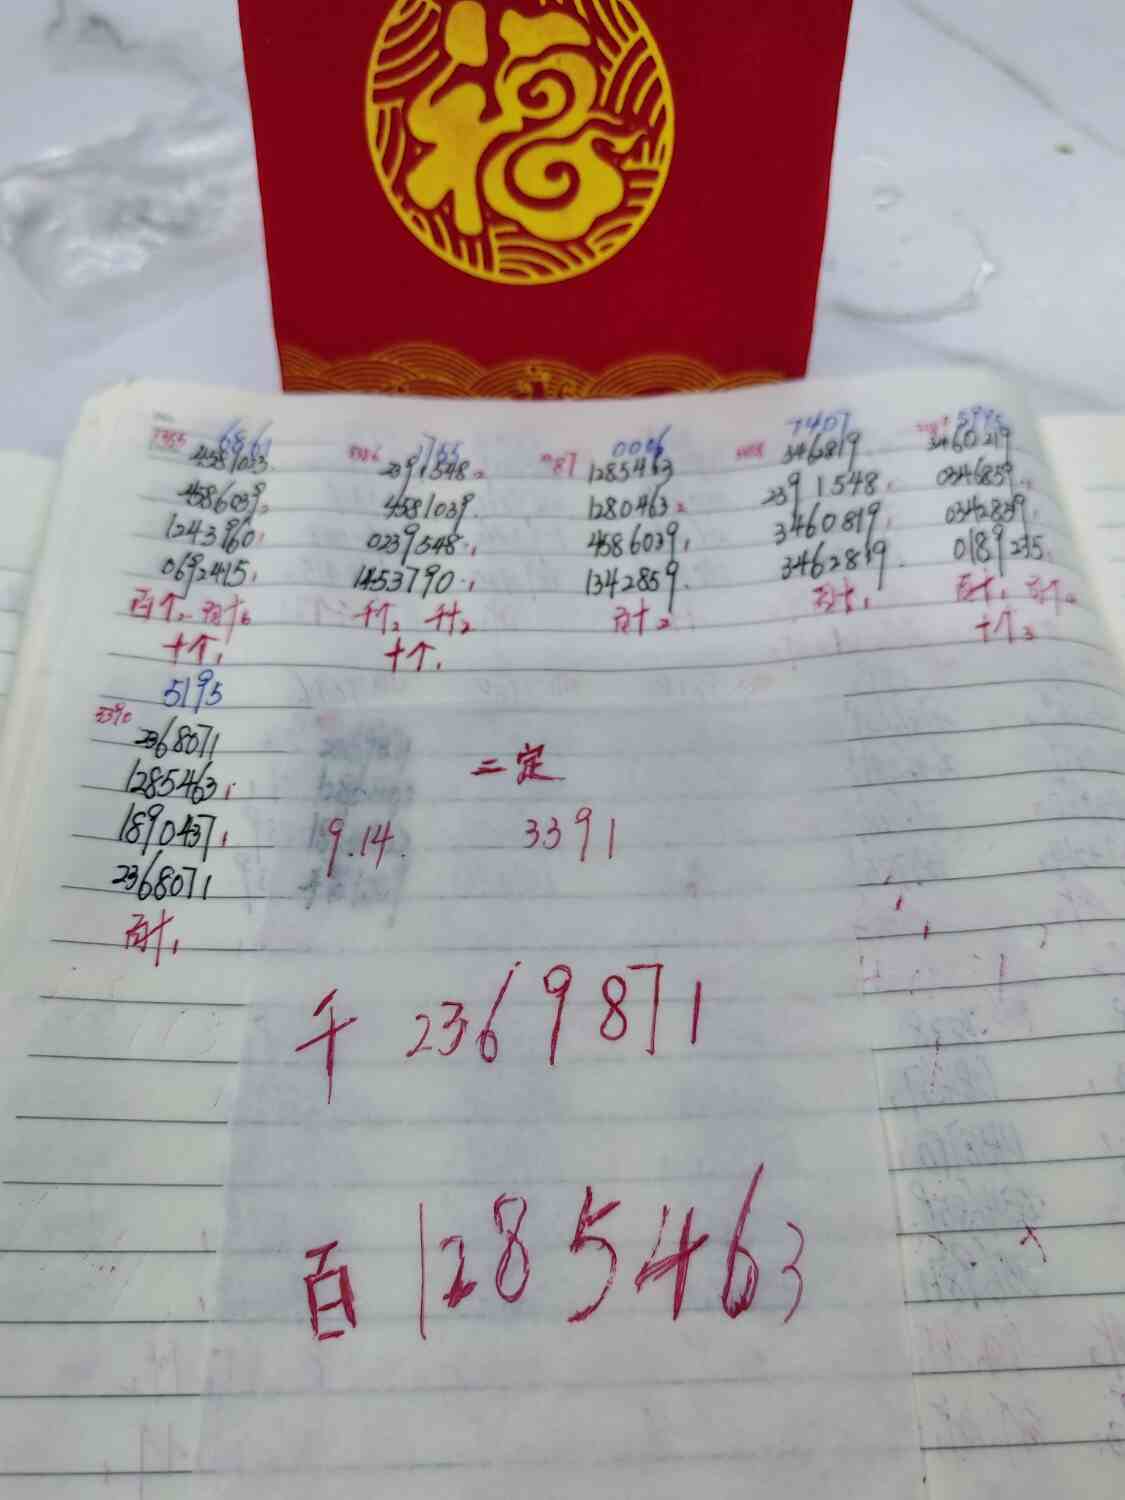 福
7355 6861
4581023
4586039.
1243960.
0692415.
百个. 百十.
十个.
1755
2391548.
4581039.
0239548.
1453790.
千个. 千十.
十个.
87 0006
1285463
1280463.
4586029.
1342859.
百十.
7407
3462819.
2391548.
3460819.
3462819.
百十.
5995
3460219
0346859.
0342839.
0189235.
百十.
十个.
3390 5195
2368071
1285463.
1890437.
2368071
百十.
二定
9.14. 3391
千 2369871
百 1285463